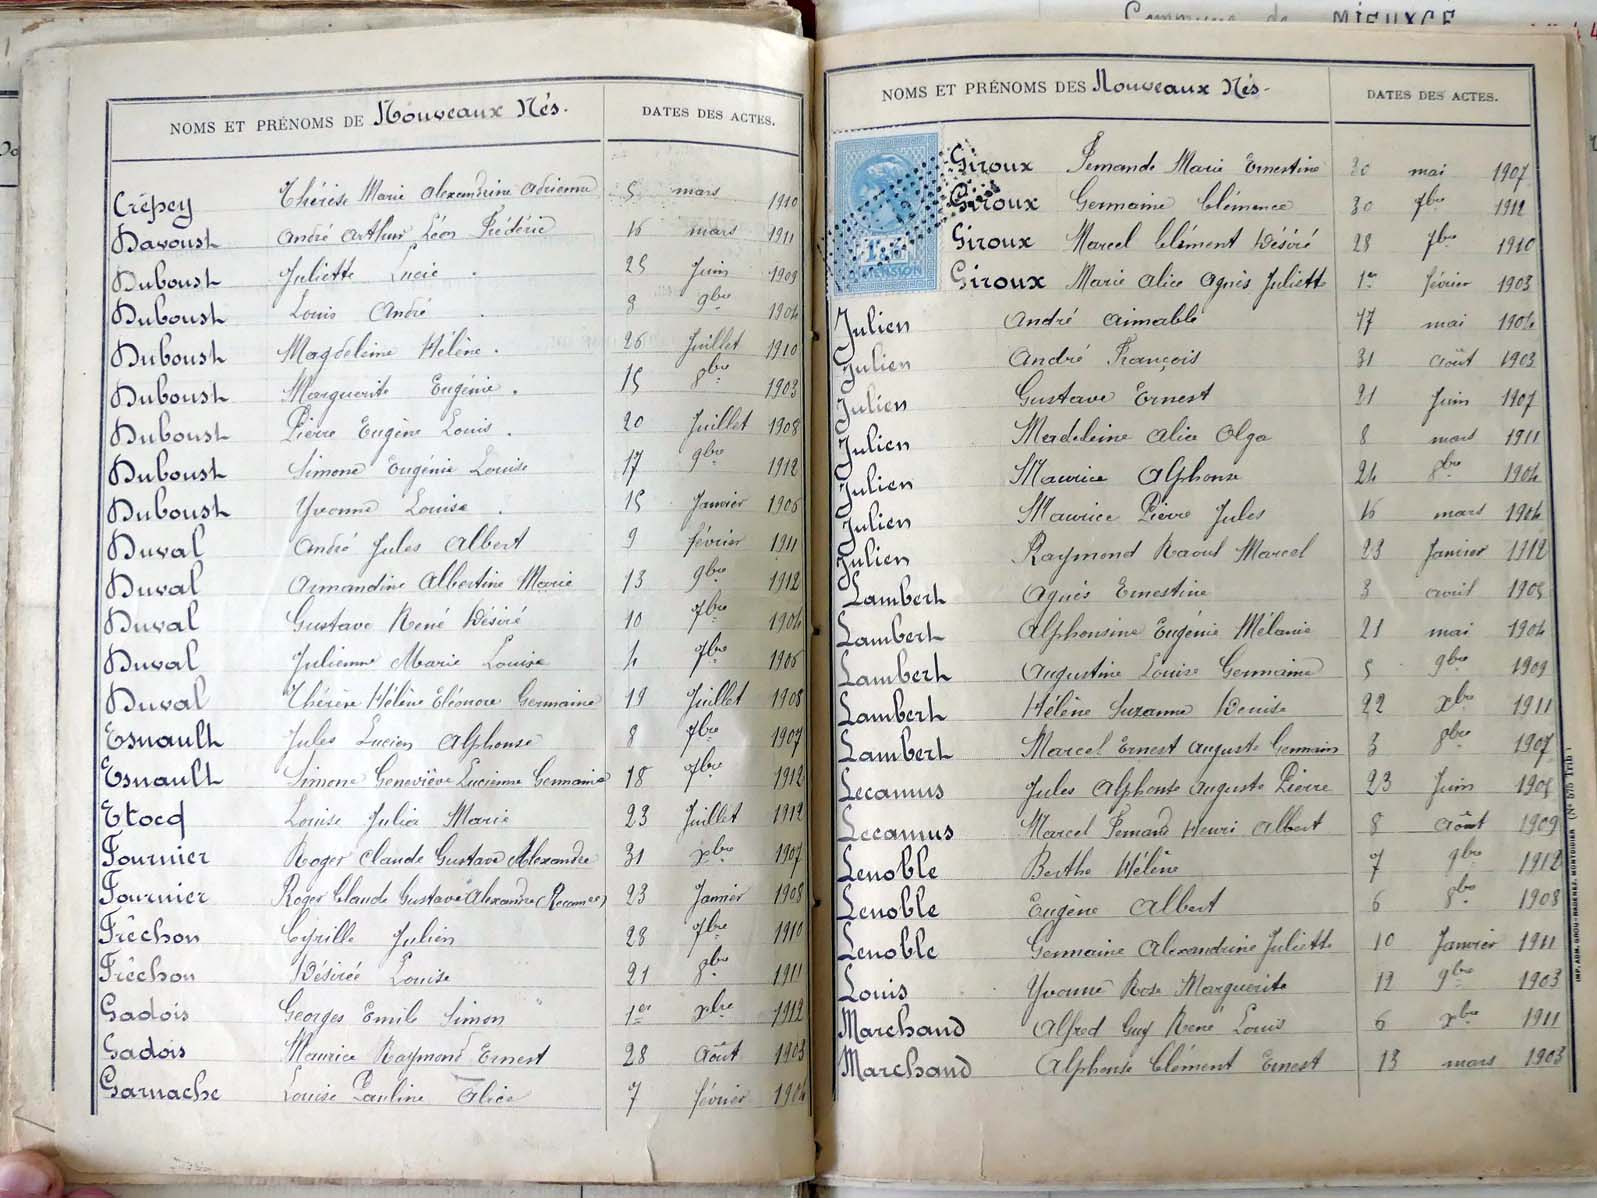 Commune de MIEUXCÉ
NOMS ET PRÉNOMS DE Nouveaux Nés.
DATES DES ACTES.
Crêpey Thérèse Marie Alexandrine Adrienne 5 mars 1910
Davoust André Arthur Léon Frédéric 16 mars 1911
Duboust Juliette Lucie 25 Juin 1909
Duboust Louis André 8 9bre 1904
Duboust Magdeleine Hélène. 26 Juillet 1910
Duboust Marguerite Eugénie. 15 8bre 1903
Duboust Pierre Eugène Louis. 20 Juillet 1908
Duboust Simone Eugénie Louise 17 9bre 1912
Duboust Yvonne Louise. 15 Janvier 1906
Duval André Jules Albert 9 février 1911
Duval Armandine Albertine Marie 13 9bre 1912
Duval Gustave René Désiré 10 7bre 1904
Duval Julienne Marie Louise 4 7bre 1906
Duval Thérèse Hélène Eléonore Germaine 19 Juillet 1908
Esnault Jules Lucien Alphonse 8 7bre 1907
Esnault Simone Geneviève Lucienne Germaine 18 7bre 1912
Etocq Louise Julia Marie 23 Juillet 1912
Fournier Roger Claude Gustave Alexandre 31 xbre 1907
Fournier Roger Claude Gustave Alexandre (Reconnce) 23 Janvier 1908
Frêchon Cyrille Julien 28 7bre 1910
Frêchon Désirée Louise 21 8bre 1911
Gadois Georges Emile Simon 1er xbre 1912
Gadois Maurice Raymond Ernest 28 Août 1903
Garnache Louise Pauline Alice 7 février 1904
NOMS ET PRÉNOMS DES Nouveaux Nés.
DATES DES ACTES.
Giroux Fernande Marie Ernestine 20 mai 1907
Giroux Germaine Clémence 30 7bre 1912
Giroux Marcel Clément Désiré 28 7bre 1910
Giroux Marie Alice Agnès Juliette 1er février 1903
Julien André Aimable 17 mai 1904
Julien André François 31 Août 1903
Julien Gustave Ernest 21 Juin 1907
Julien Madeleine Alice Olga 8 mars 1911
Julien Maurice Alphonse 24 8bre 1904
Julien Maurice Pierre Jules 16 mars 1904
Julien Raymond Raoul Marcel 23 Janvier 1912
Lambert Agnès Ernestine 3 avril 1905
Lambert Alphonsine Eugénie Mélanie 21 mai 1904
Lambert Augustine Louise Germaine 5 9bre 1909
Lambert Hélène Suzanne Denise 22 xbre 1911
Lambert Marcel Ernest Auguste Germain 3 8bre 1907
Lecamus Jules Alphonse Auguste Pierre 23 Juin 1905
Lecamus Marcel Fernand Henri Albert 8 Août 1909
Lenoble Berthe Hélène 7 9bre 1912
Lenoble Eugène Albert 6 8bre 1908
Lenoble Germaine Alexandrine Juliette 10 Janvier 1911
Louis Yvonne Rose Marguerite 12 9bre 1903
Marchand Alfred Guy René Louis 6 xbre 1911
Marchand Alphonse Clément Ernest 13 mars 1903